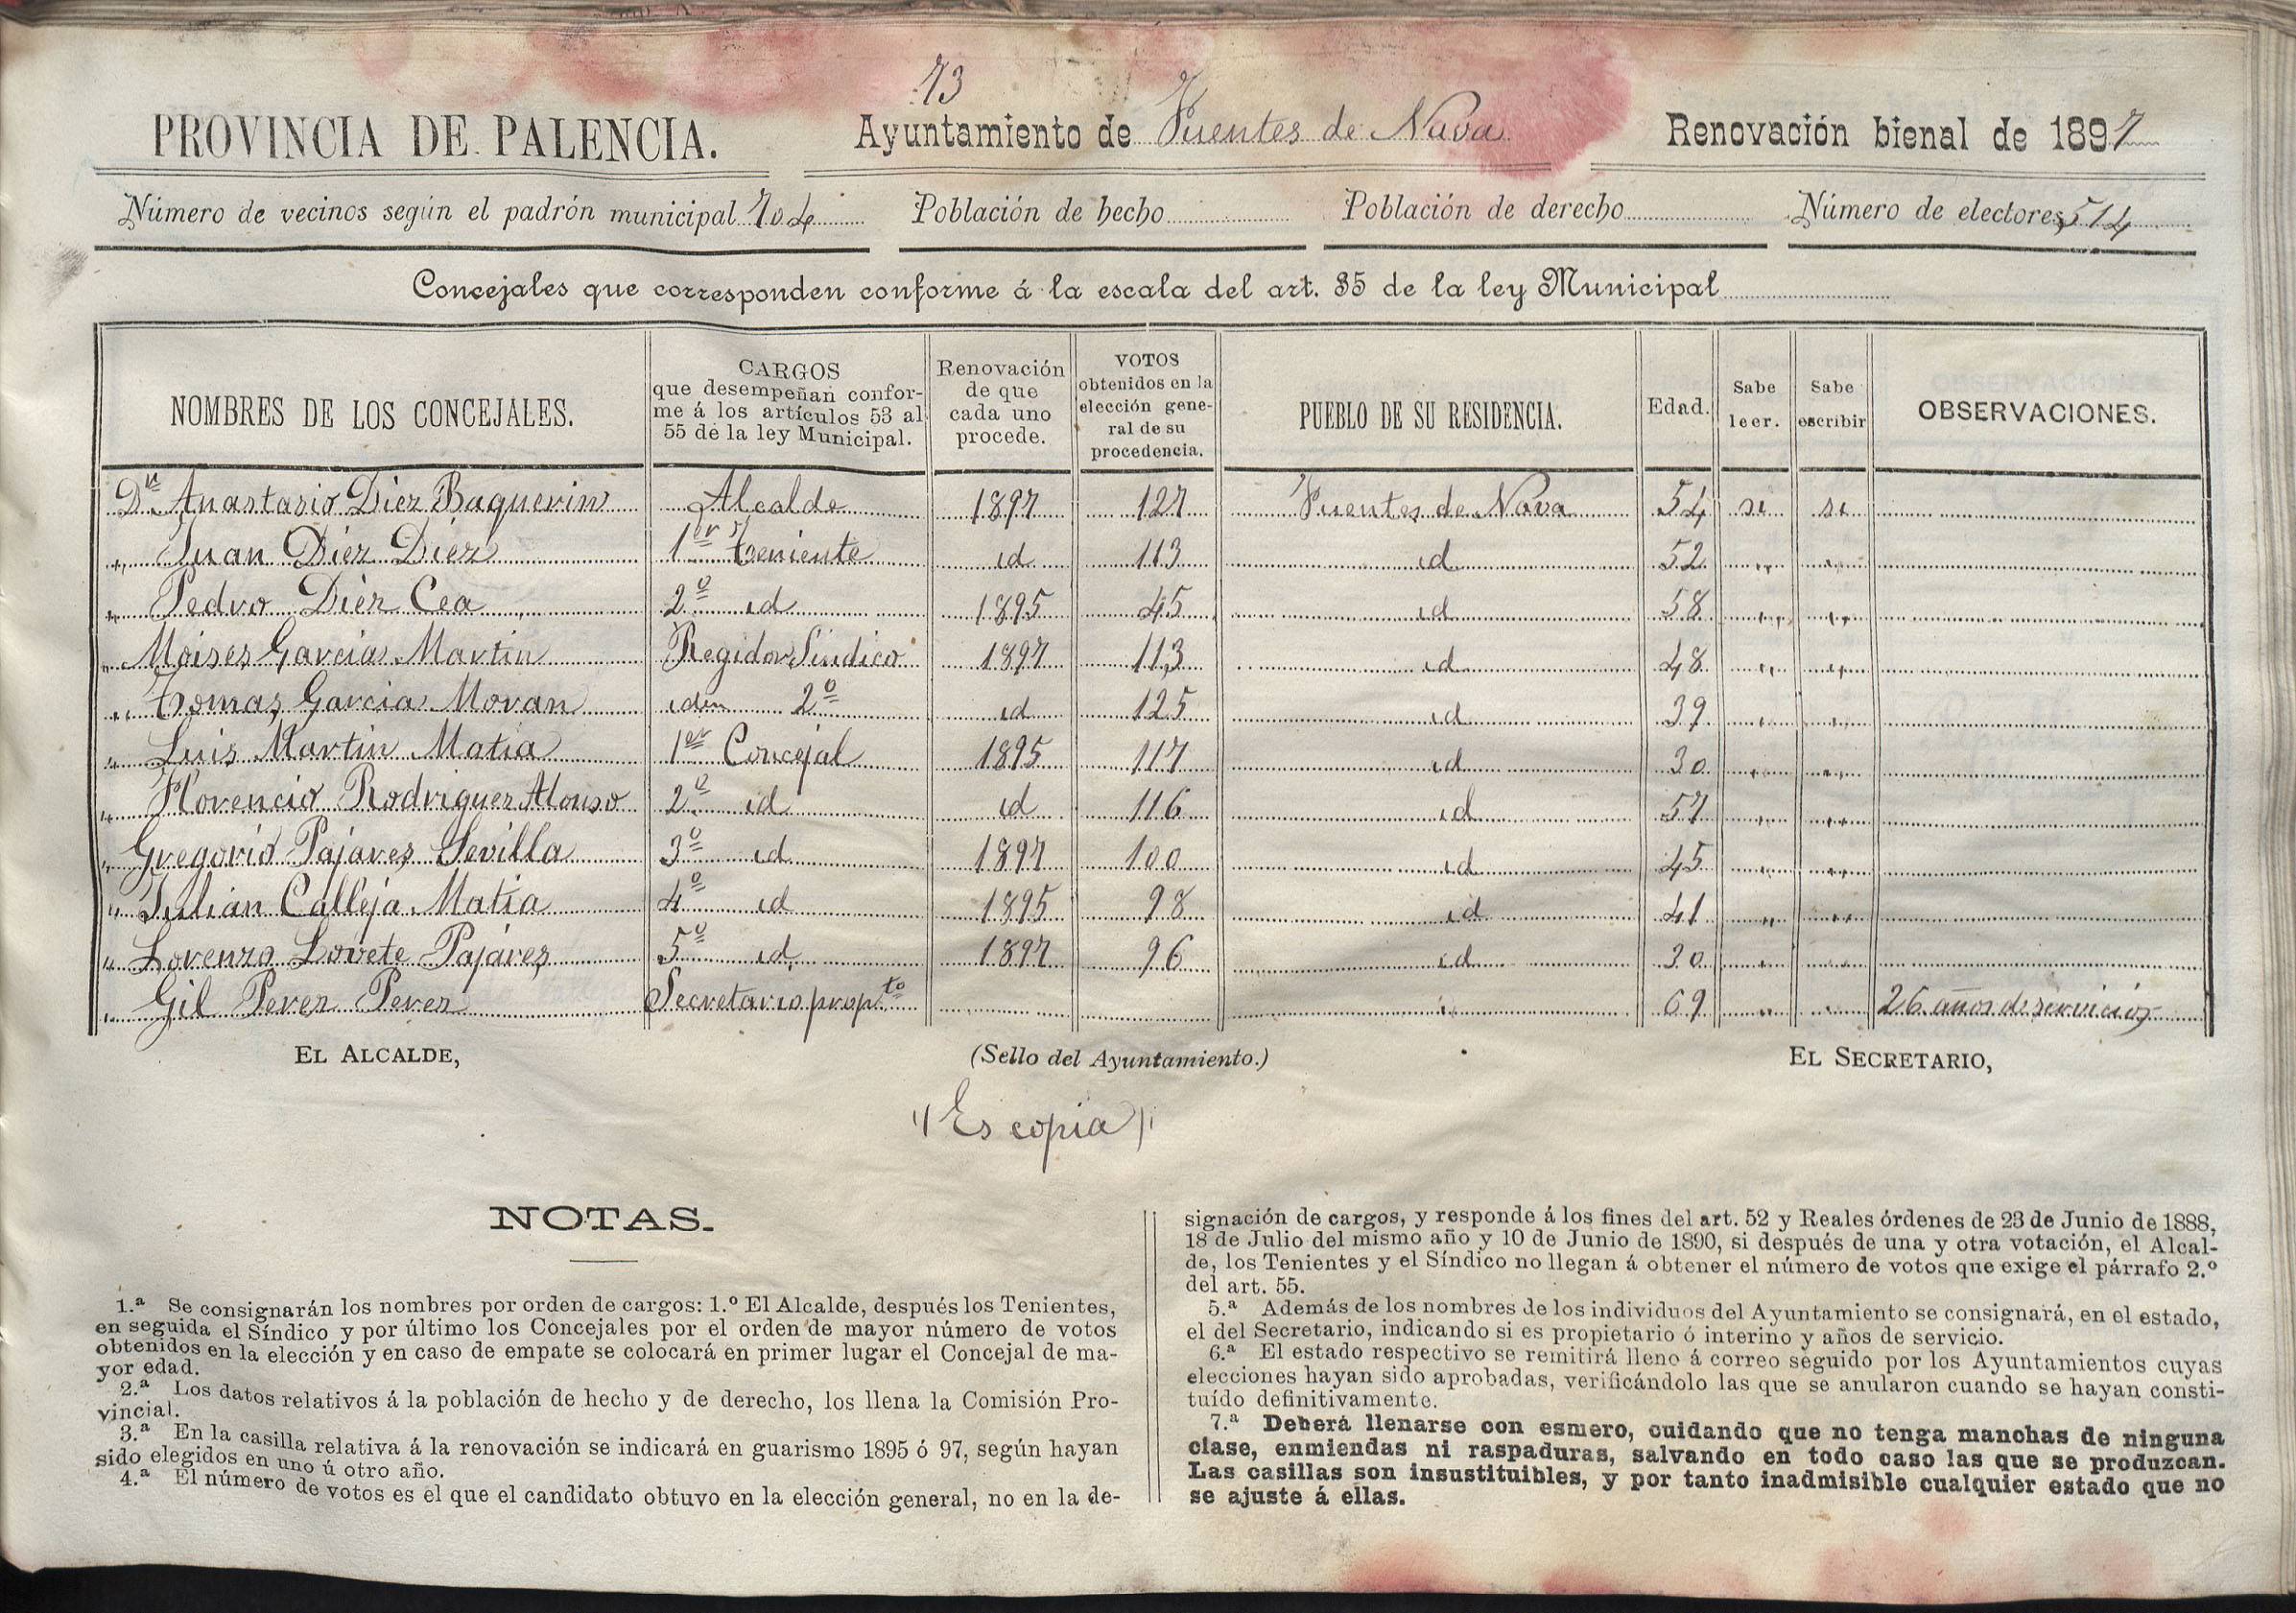 73
PROVINCIA DE PALENCIA. Ayuntamiento de Fuentes de Nava Renovación bienal de 1897
Número de vecinos según el padrón municipal 704 Población de hecho Población de derecho Número de electores 514
Concejales que corresponden conforme á la escala del art. 35 de la ley Municipal
NOMBRES DE LOS CONCEJALES.
CARGOS
que desempeñan confor-
me á los artículos 53 al
55 de la ley Municipal.
Renovación
de que
cada uno
procede.
VOTOS
obtenidos en la
elección gene-
ral de su
procedencia.
PUEBLO DE SU RESIDENCIA.
Edad.
Sabe
leer.
Sabe
escribir
OBSERVACIONES.
Dn Anastasio Diez Baquerin Alcalde 1897 127 Fuentes de Nava 54 si si
" Juan Diez Diez 1er Teniente id 113 id 52 " "
" Pedro Diez Cea 2º id 1895 45 id 58 " "
" Moises Garcia Martin Regidor Sindico 1897 113 id 48 " "
" Tomas Garcia Moran idem 2º id 125 id 39 " "
" Luis Martin Matia 1er Concejal 1895 117 id 30 " "
" Florencio Rodriguez Alonso 2º id id 116 id 57 " "
" Gregorio Pajares Sevilla 3º id 1897 100 id 45 " "
" Julian Calleja Matia 4º id 1895 98 id 41 " "
" Lorenzo Lovete Pajares 5º id 1897 96 id 30 " "
" Gil Perez Perez Secretario propto " 69 " " 26 años de servicios
EL ALCALDE, (Sello del Ayuntamiento.) EL SECRETARIO,
"(Es copia)"
NOTAS.
1.ª Se consignarán los nombres por orden de cargos: 1.º El Alcalde, después los Tenientes,
en seguida el Síndico y por último los Concejales por el orden de mayor número de votos
obtenidos en la elección y en caso de empate se colocará en primer lugar el Concejal de ma-
yor edad.
2.ª Los datos relativos á la población de hecho y de derecho, los llena la Comisión Pro-
vincial.
3.ª En la casilla relativa á la renovación se indicará en guarismo 1895 ó 97, según hayan
sido elegidos en uno ú otro año.
4.ª El número de votos es el que el candidato obtuvo en la elección general, no en la de-
signación de cargos, y responde á los fines del art. 52 y Reales órdenes de 23 de Junio de 1888,
18 de Julio del mismo año y 10 de Junio de 1890, si después de una y otra votación, el Alcal-
de, los Tenientes y el Síndico no llegan á obtener el número de votos que exige el párrafo 2.º
del art. 55.
5.ª Además de los nombres de los individuos del Ayuntamiento se consignará, en el estado,
el del Secretario, indicando si es propietario ó interino y años de servicio.
6.ª El estado respectivo se remitirá lleno á correo seguido por los Ayuntamientos cuyas
elecciones hayan sido aprobadas, verificándolo las que se anularon cuando se hayan consti-
tuído definitivamente.
7.ª Deberá llenarse con esmero, cuidando que no tenga manchas de ninguna
clase, enmiendas ni raspaduras, salvando en todo caso las que se produzcan.
Las casillas son insustituibles, y por tanto inadmisible cualquier estado que no
se ajuste á ellas.